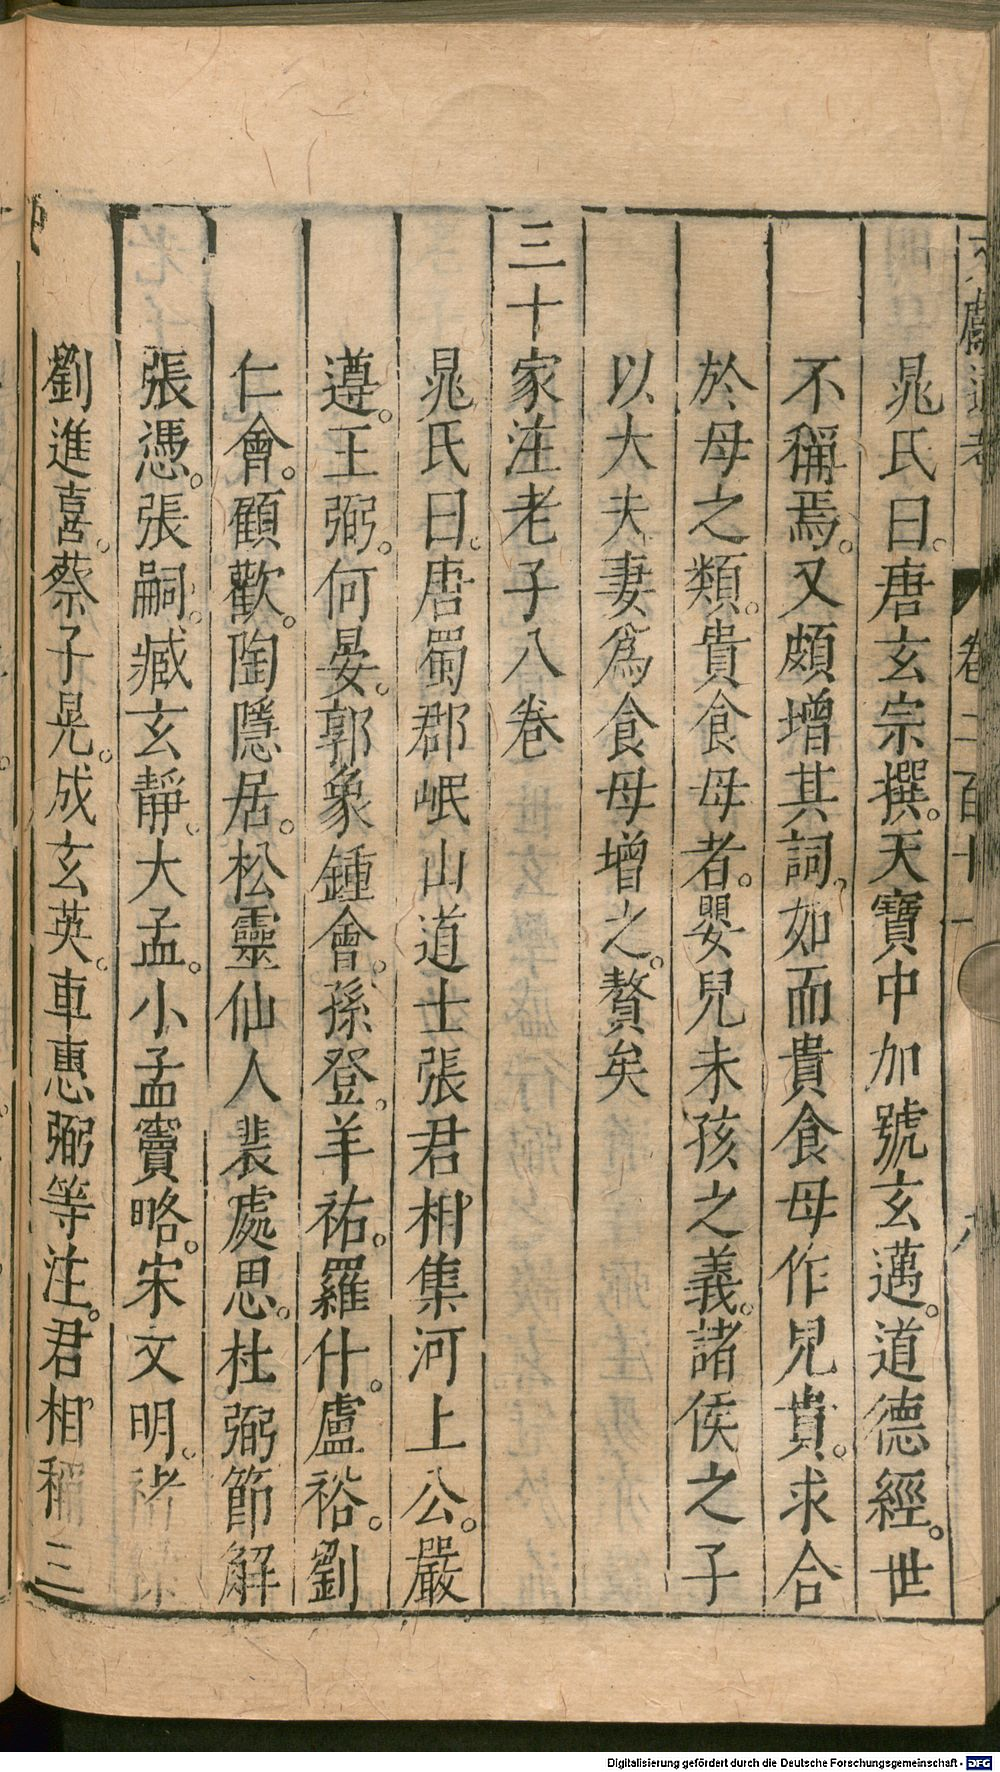 文獻通考　卷二百十一　八
晁氏曰。唐玄宗撰。天寶中加號玄邁。道德經。世
不稱焉。又頗增其詞。如而貴食母作兒貴。求合
於母之類。貴食母者。嬰兒未孩之義。諸侯之子
以大夫妻爲食母增之。贅矣
三十家注老子八卷
晁氏曰。唐蜀郡岷山道士張君相集河上公。嚴
遵。王弼。何晏。郭象鍾會。孫登。羊祐。羅什。盧裕。劉
仁會。顧歡。陶隱居。松靈仙人裴處思。杜弼節解
張憑。張嗣。臧玄靜。大孟。小孟竇略。宋文明。褚糅
劉進喜。蔡子晃。成玄英。車惠弼等注。君相稱三
Digitalisierung gefördert durch die Deutsche Forschungsgemeinschaft - DFG